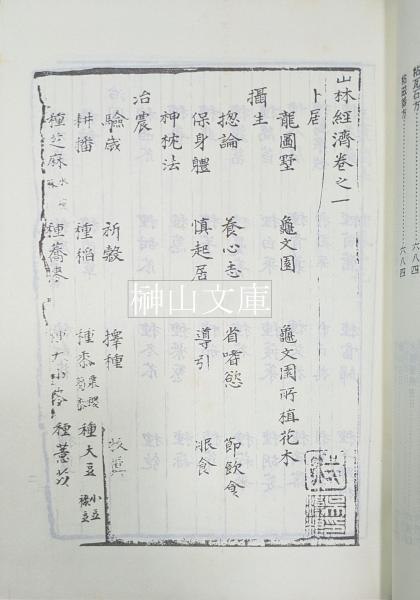 山林經濟卷之一
卜居
龍圖墅 龜文園 龜文園所植花木
攝生
揔論 養心志 省嗜慾 節飮食
保身軆 愼起居 導引 服食
神枕法
治農
驗歲 祈穀 擇種
耕播 種稻 種黍 粟 種大豆 小豆
種芝麻 種蕎麥 種薏苡
榊山文庫
六八四
六八四